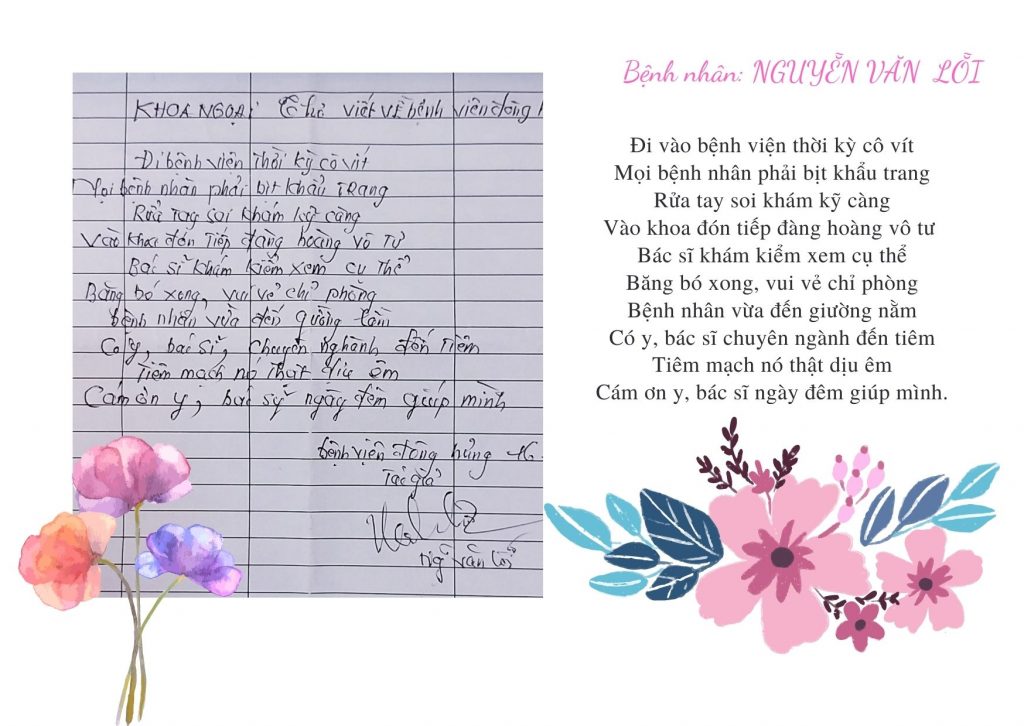 KHOA NGOẠI
viết về bệnh viện đông
Đi bệnh viện thời kỳ cô vít
Mọi bệnh nhân phải bịt khẩu trang
Rửa tay soi khám kỹ càng
Vào khoa đón tiếp đàng hoàng vô tư
Bác sĩ khám kiểm xem cụ thể
Băng bó xong, vui vẻ chỉ phòng
bệnh nhân vừa đến giường lằm
Có y, bác sĩ, chuyên nghành đến tiêm
Tiêm mạch nó thật dịu êm
Cám ơn y, bác sỹ ngày đêm giúp mình
bệnh viện đông hưng
Tác giả
Ng Văn Lỗi
Bệnh nhân: NGUYỄN VĂN LỖI
Đi vào bệnh viện thời kỳ cô vít
Mọi bệnh nhân phải bịt khẩu trang
Rửa tay soi khám kỹ càng
Vào khoa đón tiếp đàng hoàng vô tư
Bác sĩ khám kiểm xem cụ thể
Băng bó xong, vui vẻ chỉ phòng
Bệnh nhân vừa đến giường nằm
Có y, bác sĩ chuyên ngành đến tiêm
Tiêm mạch nó thật dịu êm
Cám ơn y, bác sĩ ngày đêm giúp mình.